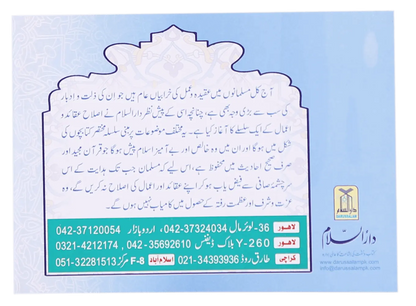 آج کل مسلمانوں میں عقیدہ و عمل کی خرابیاں عام ہیں جو ان کی ذلت و ادبار
کی سب سے بڑی وجہ بھی ہے، چنانچہ اسی کے پیش نظر دارالسلام نے اصلاح عقائد و
اعمال کے ایک سلسلے کا آغاز کیا ہے۔ یہ مختلف موضوعات پر مبنی سلسلہ مختصر کتابچوں کی
شکل میں ہوگا اور ان میں وہ خالص اور بے آمیز اسلام پیش ہوگا جو قرآن مجید اور
صرف صحیح احادیث میں محفوظ ہے، اس لیے کہ مسلمان جب تک ہدایت کے اس
سرچشمہ صافی سے فیض یاب ہو کر اپنے عقائد اور اعمال کی اصلاح نہ کریں گے، وہ
عزت و شرف اور عظمت رفتہ کے حصول میں کامیاب نہیں ہوں گے۔
لاہور 36- لوئر مال 042-37324034، اردو بازار 042-37120054
لاہور Y-260 بلاک ڈیفنس 042-35692610، 0321-4212174
کراچی طارق روڈ 021-34393936 اسلام آباد F-8 مرکز 051-32281513
دارالسلام
DARUSSALAM
دارالسلام
www.darussalampk.com
info@darussalampk.com